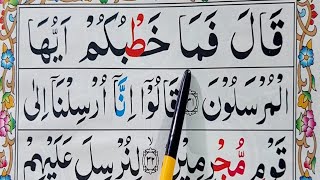 قَالَ فَمَا خَطْبُكُمْ اَيُّهَا
الْمُرْسَلُوْنَ ۝۳۱ قَالُوْۤا اِنَّاۤ اُرْسِلْنَاۤ اِلٰى
قَوْمٍ مُّجْرِمِيْنَ ۝۳۲ لِنُرْسِلَ عَلَيْهِمْ